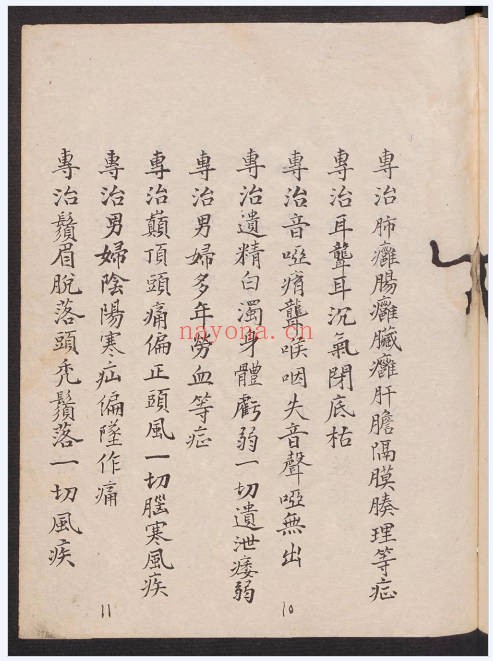 專治肺癰腸癰臟癰肝膽隔膜腠理等症
專治耳聾耳沉氣閉底枯
專治音啞瘖聾喉咽失音聲啞無出
專治遺精白濁身體虧弱一切遺泄痿弱
專治男婦多年勞血等症
專治巔頂頭痛偏正頭風一切腦寒風疾
專治男婦陰陽寒疝偏墜作痛
專治鬚眉脫落頭禿鬚落一切風疾
10
11
nayona.cn